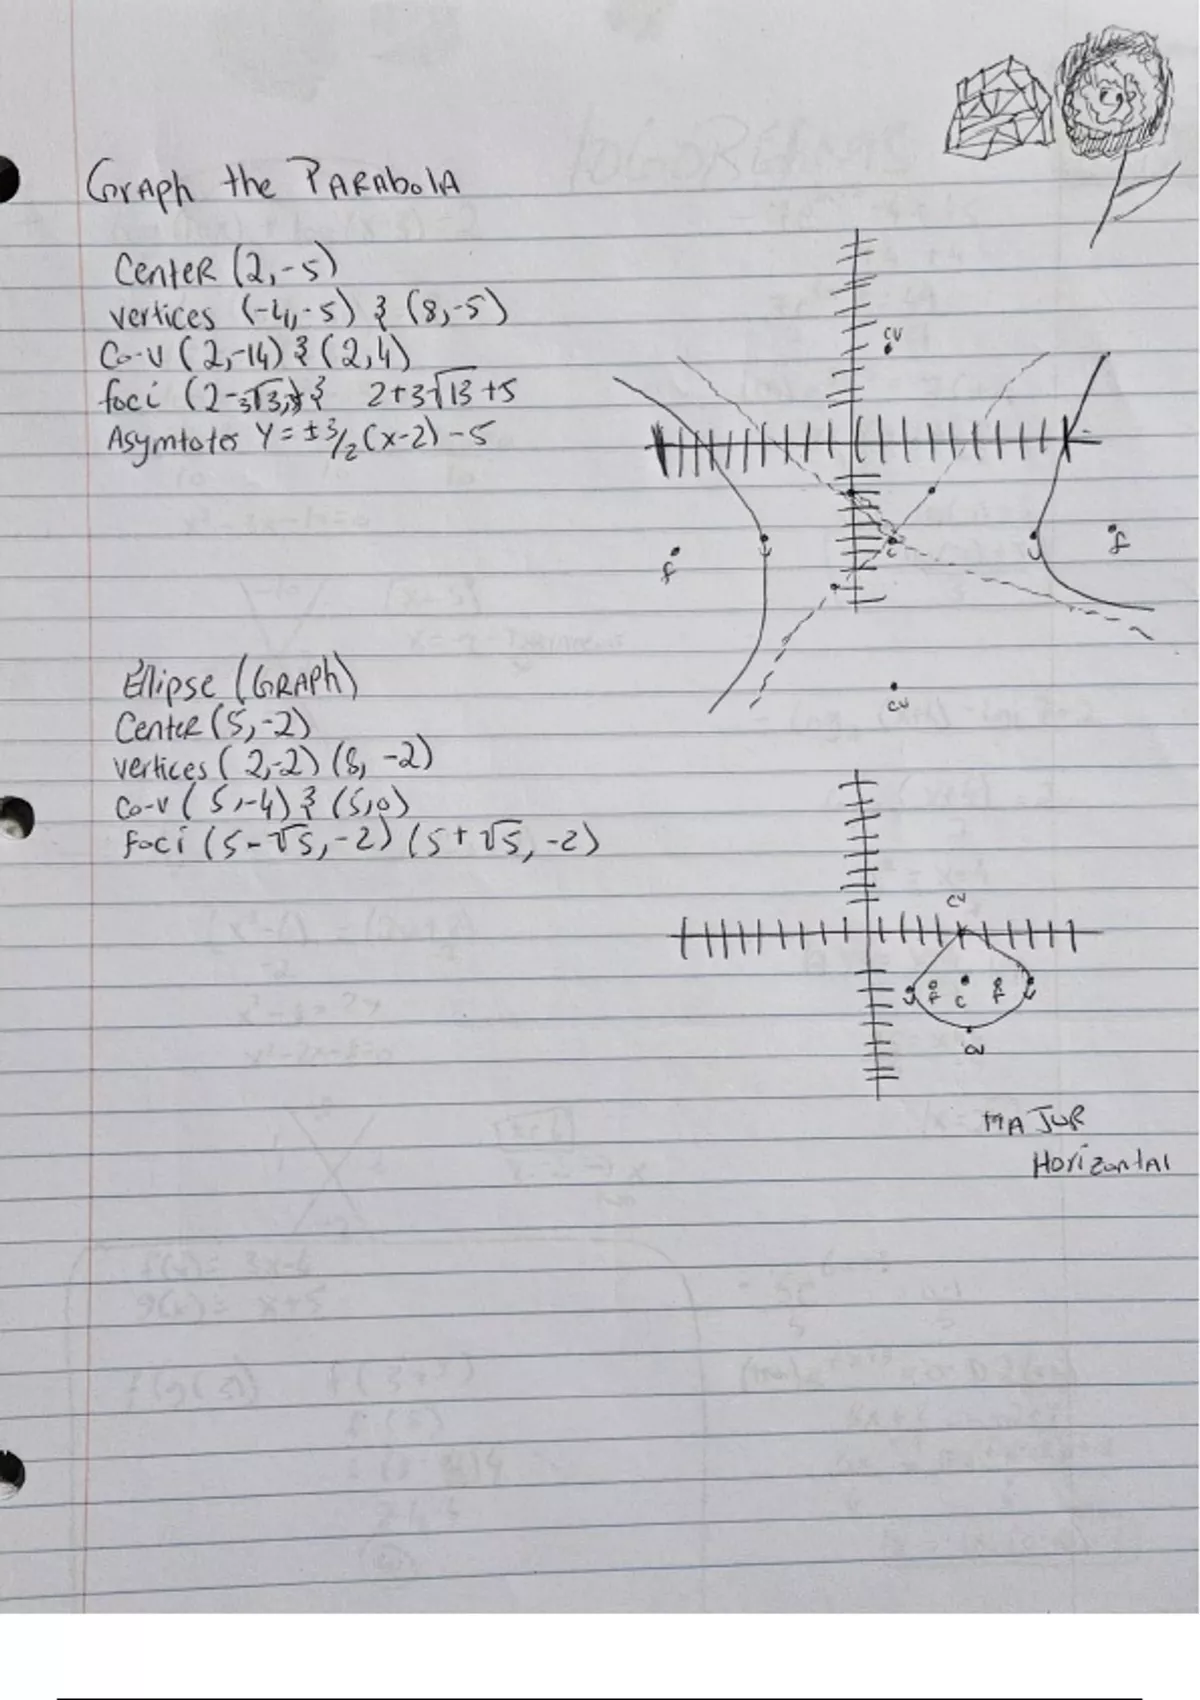 Graph the Parabola
Center (2,-5)
vertices (-4,-5) & (8,-5)
Co-v (2,-14) & (2,4)
foci (2-3√13, & 2+3√13+5
Asymtotes Y = ±3/2(x-2)-5
cv
f
v
c
v
f
cv
Ellipse (Graph)
Center (5,-2)
vertices (2,-2) (8, -2)
Co-v (5,-4) & (5,0)
foci (5-√5,-2) (5+√5,-2)
cv
v f c f v
cv
MAJOR
Horizontal